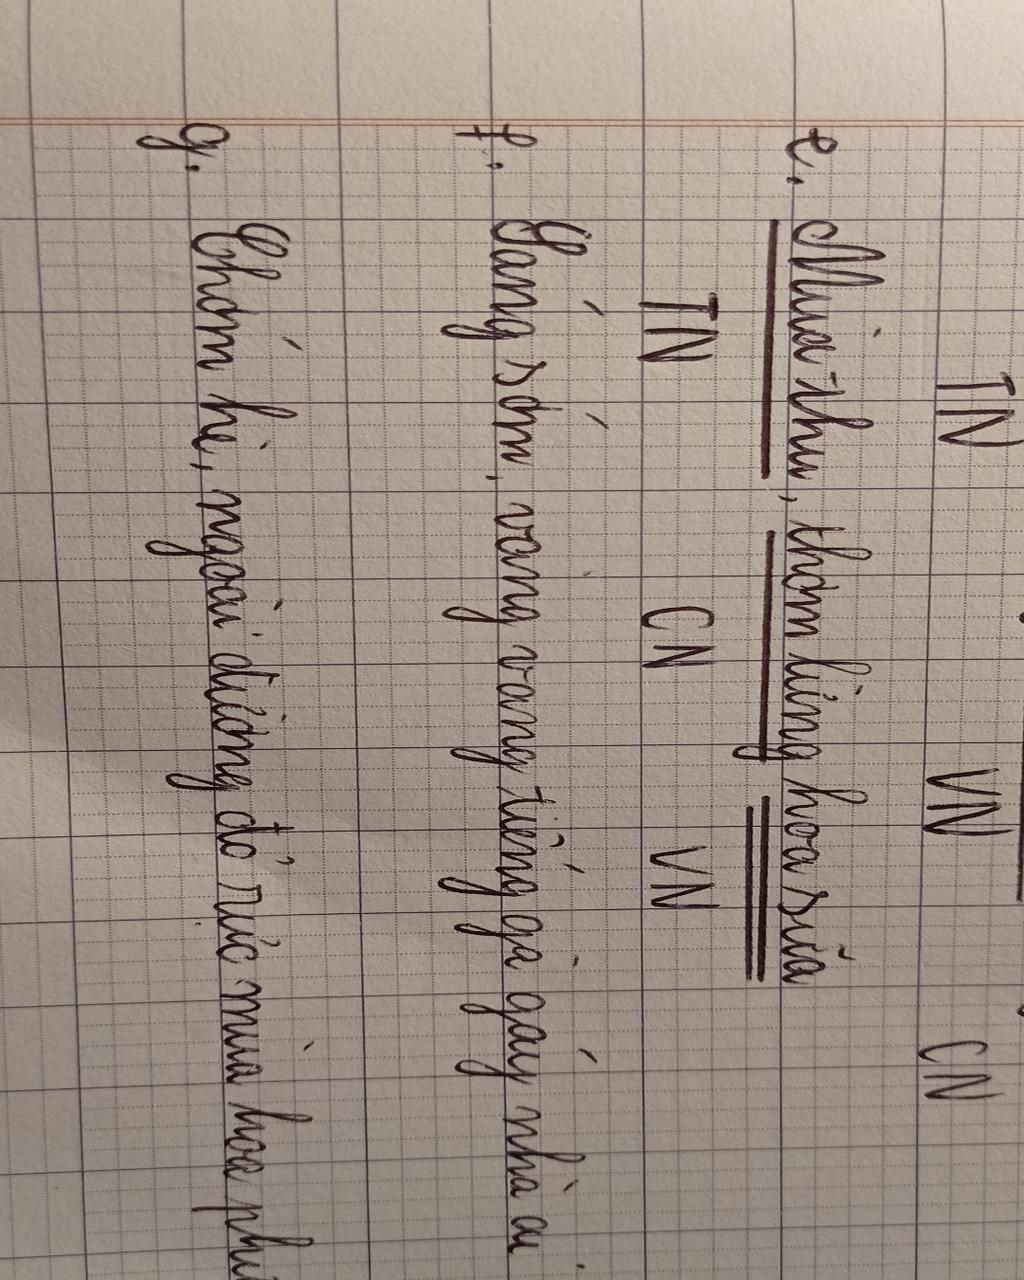 TN VN CN
e. Mùa thu, thơm lừng hoa sữa
TN CN VN
f. Sáng sớm, vang vang tiếng gà gáy nhà ai
g. Chớm hè, ngoài đường đỏ rực màu hoa